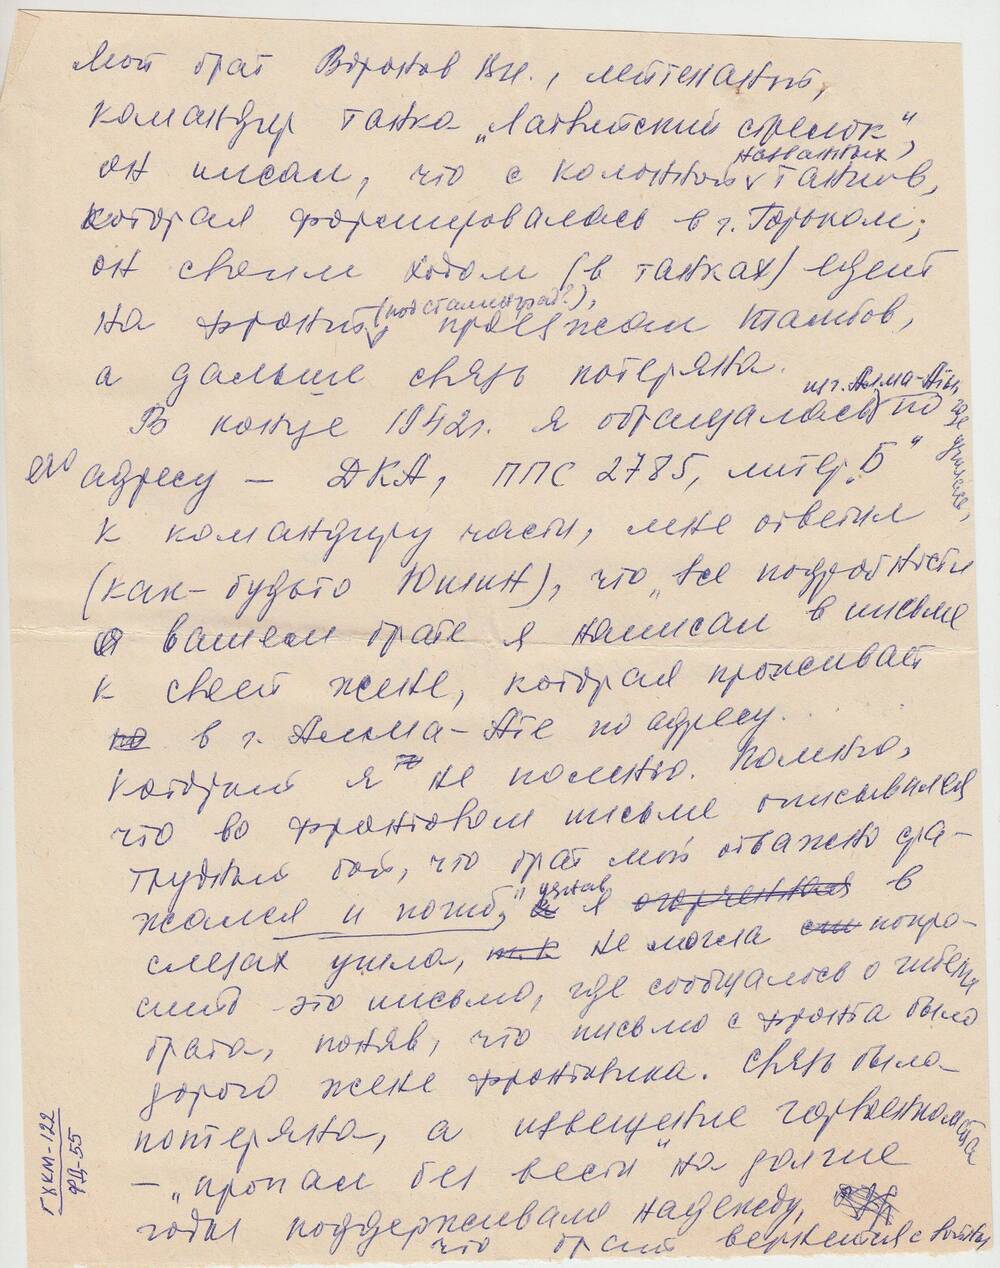 Мой брат Воронов Вл., лейтенант,
командир танка „Латвийский стрелок",
он писал, что с колонной названных танков,
которая формировалась в г. Горьком;
он своим ходом (в танках) едет
на фронт (под Сталинград?), проезжал Тамбов,
а дальше связь потеряна.
В конце 1942г. я обращалась из г. Алма-Аты, где жила, по
его адресу – ДКА, ППС 2785, литер „Б"
к командиру части, мне ответил
(как-будто Юдин), что „все подробности
о вашем брате я написал в письме
к своей жене, которая проживает
в г. Алма-Ате по адресу..
который я не помню. Помню,
что во фронтовом письме описывался
трудный бой, что брат мой отважно сра-
жался и погиб," узнав я огорченная в
слезах ушла, т.к. не могла попро-
сить это письмо, где сообщалось о гибели
брата, поняв, что письмо с фронта было
дорого жене фронтовика. Связь была
потеряна, а извещение горвоенкомата
– „пропал без вести" на долгие
годы поддерживало надежду,
что брат вернется с войны
ГУКМ-122
ФД-55